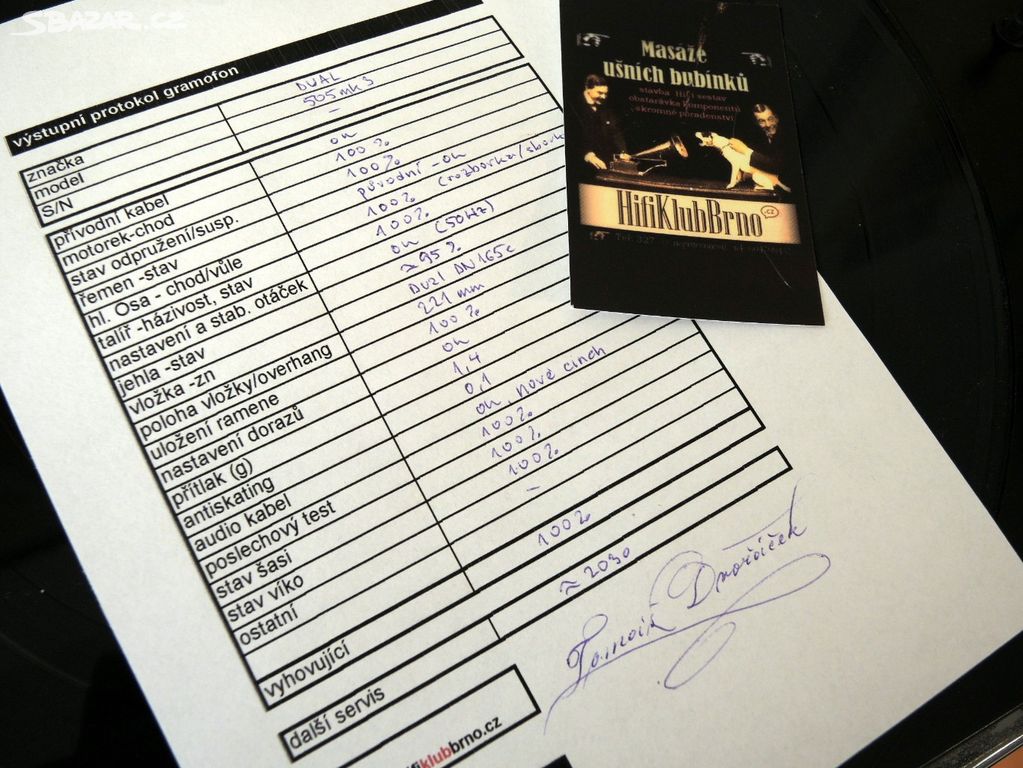 SBAZAR.CZ
výstupní protokol gramofon
značka DUAL
model 505 mk3
S/N –
přívodní kabel ok
motorek-chod 100%
stav odpružení/susp. 100%
řemen -stav původní - ok
hl. Osa - chod/vůle 100% (rozborka/sborka
talíř -házivost, stav 100%
nastavení a stab. otáček ok (50Hz)
jehla -stav ≈95%
vložka -zn Dual DN165e
poloha vložky/overhang 221 mm
uložení ramene 100%
nastavení dorazů ok
přítlak (g) 1,4
antiskating 0,1
audio kabel ok, nové cinch
poslechový test 100%
stav šasi 100%
stav víko 100%
ostatní –
vyhovující 100%
další servis ≈2030
Tomáš Dvořáček
klubbrno.cz
Masáže
ušních bubínků
stavba Hifi sestav
obstarávka komponentů
skromné poradenství
HifiKlubBrno.cz